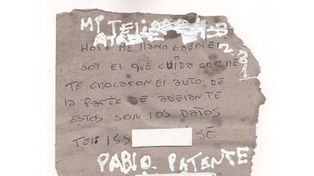 MI TEL:
HOLA ME LLAMO GABRIEL
SOY EL QUE CUIDA COCHE
TE CHOCARON EL AUTO DE
LA PARTE DE ADELANTE
ESTOS SON LOS DATOS
PABLO PATENTE